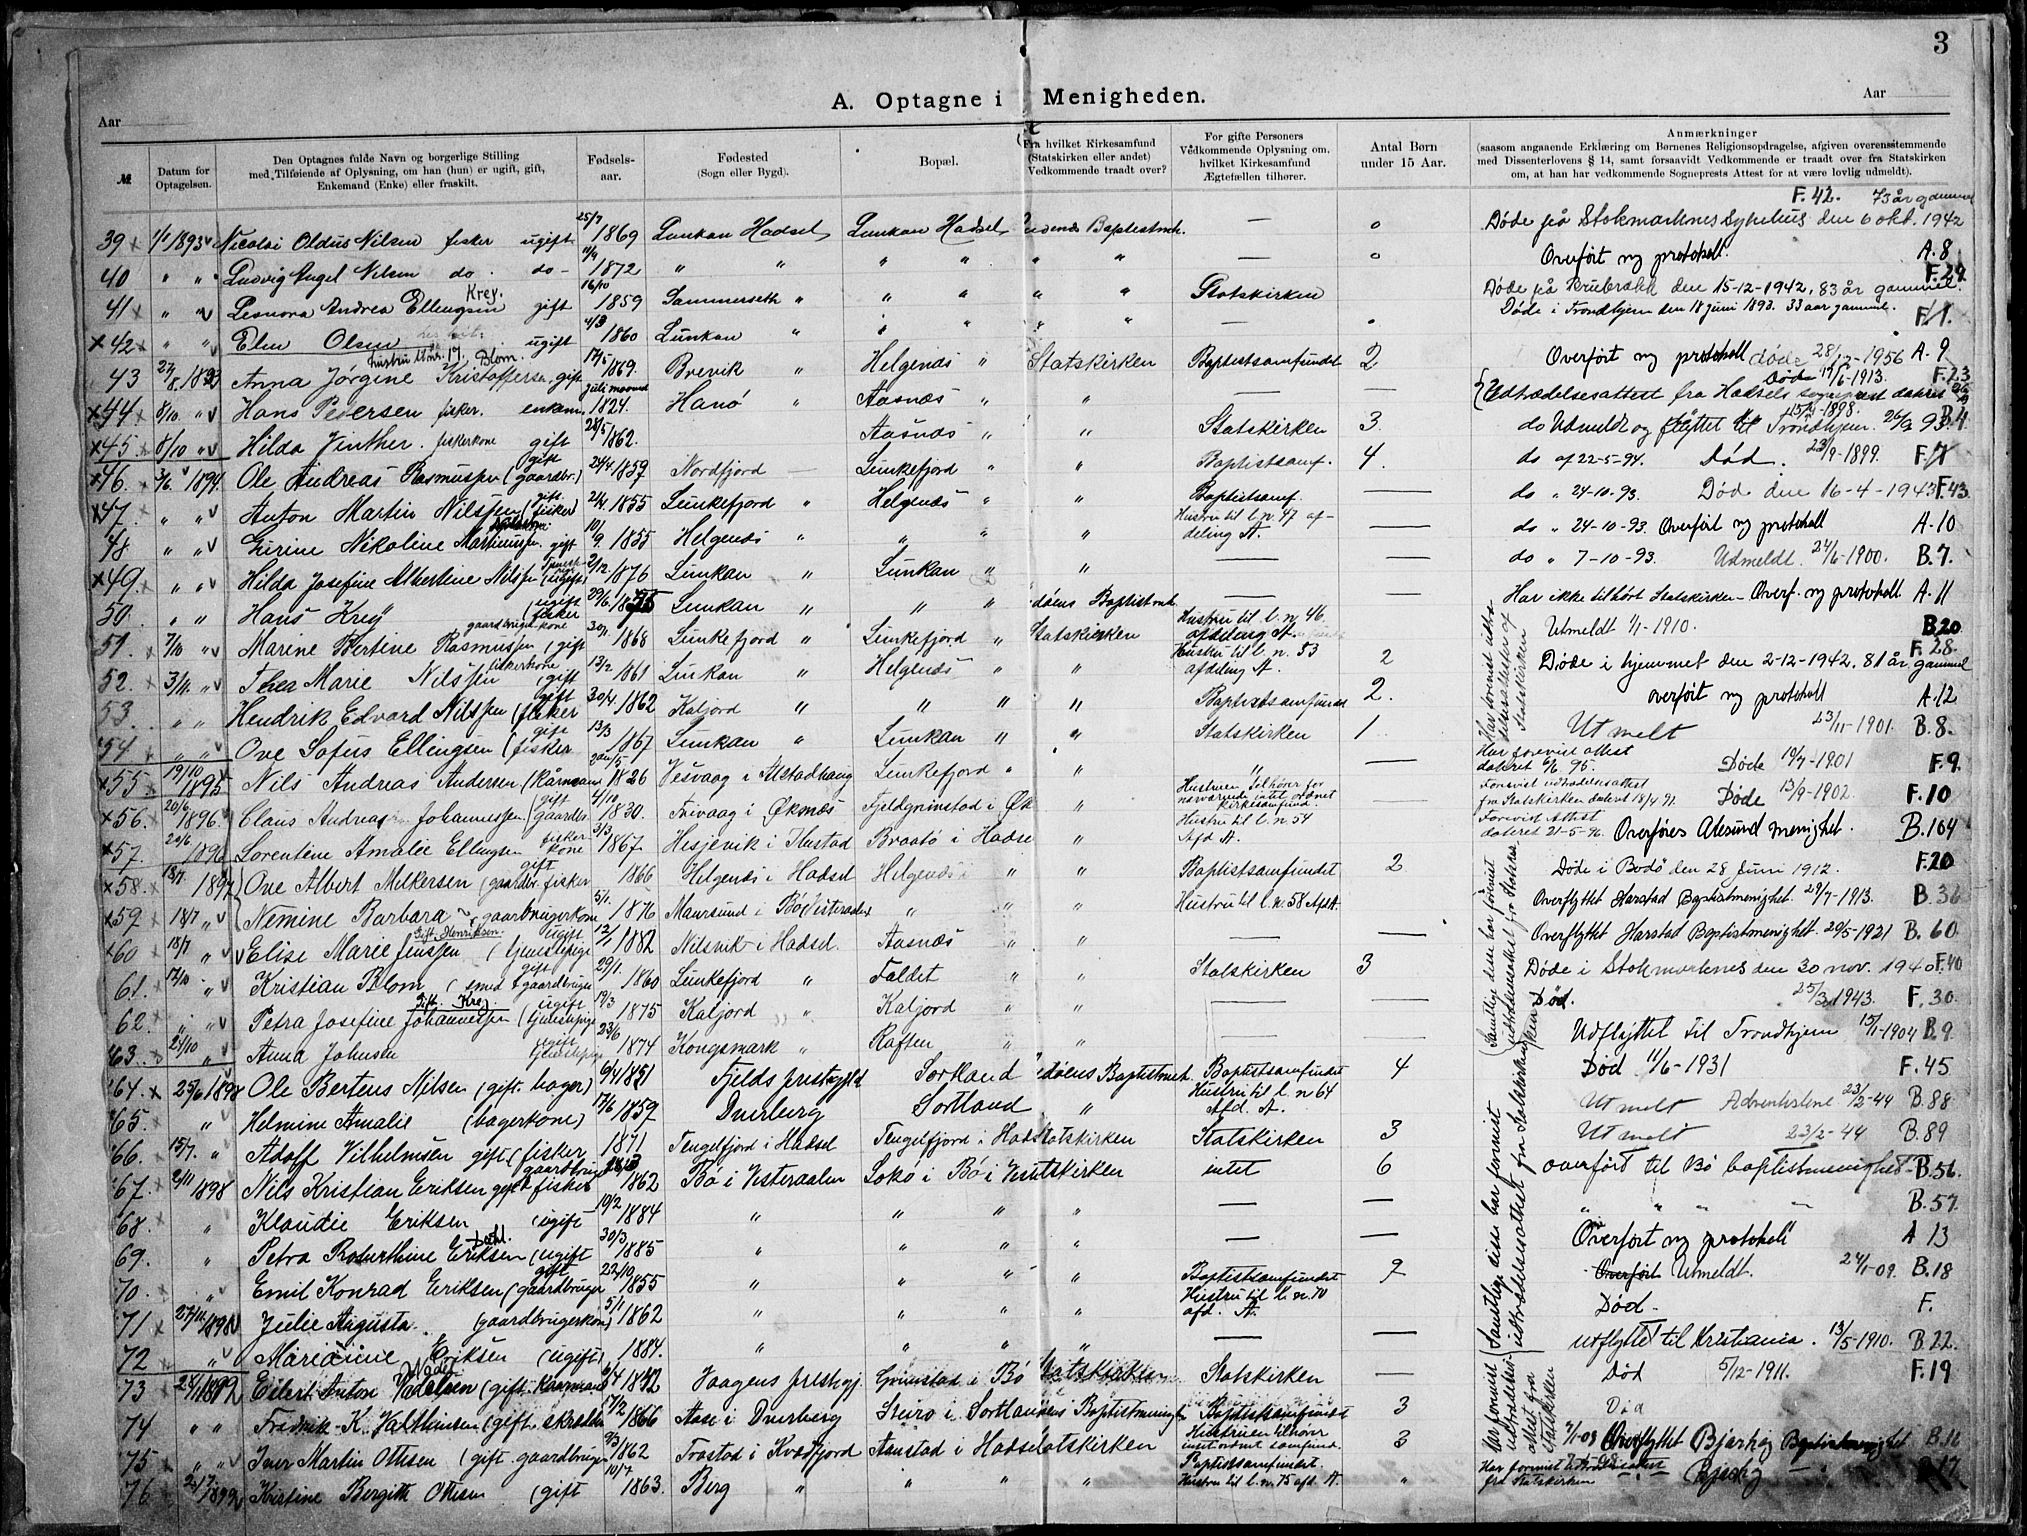 3
A. Optagne i Menigheden.
Aar
Aar
№
Datum for Optagelsen.
Den Optagnes fulde Navn og borgerlige Stilling
med Tilføiende af Oplysning, om han (hun) er ugift, gift,
Enkemand (Enke) eller fraskilt.
Fødsels-
aar.
Fødested
(Sogn eller Bygd).
Bopæl.
Fra hvilket Kirkesamfund
(Statskirken eller andet)
Vedkommende traadt over?
For gifte Personers
Vedkommende Oplysning om,
hvilket Kirkesamfund
Ægtefællen tilhører.
Antal Børn
under 15 Aar.
Anmærkninger
(saasom angaaende Erklæring om Børnenes Religionsopdragelse, afgiven overensstemmende
med Dissenterlovens § 14, samt forsaavidt Vedkommende er traadt over fra Statskirken
om, at han har vedkommende Sogneprests Attest for at være lovlig udmeldt).
F. 42. 73 år gammel
39 1/1 1893 Nicolai Oldus Nilsen fisker ugift 25/7 1869 Lunkan Hadsel Lunkan Hadsel Baptistmh. — 0 Døde på Stokmarknes sykehus den 6 okt. 1942
40 " " Ludvig Angel Nilsen do. do- 11/9 1872 " " " " " " — 0 Overført ny protokoll. A. 8
41 " " Leonora Andrea Ellengsen Krey. gift 16/10 1859 Sammerseth " " " " " Statskirken Døde på Brubrakk den 15-12-1942, 83 år gammel. F. 29
42 " " Elen Olsen ugift 4/3 1860 Lunkan " " " " " — Døde i Trondhjem den 18 juni 1893. 33 aar gammel. F. 1.
43 27/8. 1893 Anna Jørgine Kristoffersen Blom. gift hustru til nr. 17. 17/5 1869. Brevik " Helgenes " Statskirken Baptistsamfundet 2 Overført ny protokoll døde 28/12-1956 A. 9
44 8/10. " Hans Pedersen fisker. enkem. juli maaned 1824. Hanø " Aasnæs " " — — Udtrædelsesattest fra Hadsels sogneprest dateret Døde 17/6-1913. F. 23
45 8/10 " Hilda Vinther. fiskerkone gift 28/5 1862. Aasnæs " " Statskirken 3. do Udmeldt og flyttet til Trondhjem. 15/4-1898. 26/9 93. B. 4.
46. 3/6. 1894. Ole Andreas Rasmussen (gift gaardbr.) 24/4 1859 Nordfjord — Lunkefjord " " Baptistsamf. 4. do af 22-5-94. Død. 23/9-1899. F. 7
47. " " Anton Martin Nilssen (gift fisker) 2/4 1855 Lunkefjord " Helgenæs " " Baptistsamf. — do " 24-10-93. Død den 16-4-1943 F. 43.
48 " " Eurine Nikoline Martinussen gift 10/9. 1855 Helgenæs " " " " Hustru til l. n. 47 af- deling A. — do " 24-10-93. Overført ny protokoll A. 10
49. " " Hilda Josefine Albertine Nilssen (ugift) 2/12. 1876 Lunkan " Lunkan " " — — do " 7-10-93. Udmeldt. 24/6-1900. B. 7.
50. " " Hans Krey (ugift fisker 29/6. 1875 Lunkan " " " Baptistmh. — — Har ikke tilhørt Statskirken - Overf. ny protokoll A. 11
51. 7/10 " Marine Bertine Rasmussen gaardbruger kone (gift 30/1 1868 Lunkefjord " Lunkefjord. " Statskirken Hustru til l. n. 46. afdeling A. Utmeldt 1/1-1910. B. 20
52. 3/11. " Thea Marie Nilssen fiskerkone (gift 13/2 1861 Lunkan " Helgenæs " " Hustru til l. n. 53 afdeling A. 2 Døde i hjemmet den 2-12-1942. 81 år gammel F. 28.
53. " " Hendrik Edvard Nilssen (gift fisker 30/4 1862 Kaljord " " " " Baptistsamfundet 2. overført ny protokoll A. 12
54. " " Ove Sofus Ellingsen (gift fisker 13/3 1867 Lunkan " Lunkan " " Statskirken 1. Utmelt 23/11-1901. B. 8.
55. 19/10 1895 Nils Andreas Andersen (Kårmand 20/5 1826 Vesvaag i Alstadhaug Lunkefjord " " " — Har forevist attest dateret 6/6 95. Døde 19/7-1901 F. 9.
56. 20/6 1896. Claus Andreas Johannessen (gift gaardbr. 4/10 1830. Trivaag i Øknæs Fjeldgrinstad i Øk " Hustruen tilhører for nærværende intet ordnet Kirkesamfund. Forevist udtrædelsesattest fra Statskirken dateret 18/4 91. Døde 13/9-1902. F. 10
57. 20/6. 1896 Lorentine Amalie Ellingsen fisker kone 3/3 1867. Hesjevik i Ibestad Braatø i Hadse " Hustru til l. n 54 Afd A. Forevist Attest dateret 21-5-96. Overføres Alesund menighet. B. 104
58. 18/7 1897 Ove Albert Melkersen (gift gaardbr. fisker 1866 Helgenæs i Hadsel Helgenæs i " " Baptistsamfundet 2 Døde i Bodø den 28 Juni 1912. F. 20
59 18/7 " Nemine Barbara — gaardbrugerkone 5/1. 1876 Maursund i Bø Vesteraalen " " Hustru til l. n. 58 Afd A. Overflyttet Harstad Baptistmenighet. 29/7-1913. B. 36
60 18/7 " Elise Marie Jenssen Gift Henriksen. (ugift tjenestepige 12/1 1882 Nilsvik i Hadsel Aasnæs " " — — Overflyttet Harstad Baptistmenighet 20/5-1921 B. 60
61. 17/10 " Kristian Blom (gift smed & gaardbruger 29/1. 1860 Lunkefjord " Faldet " " Statskirken 3 Døde i Stokmarknes den 30 nov. 1940 F. 40
62. " " Petra Josefine Johannessen Gift. Krey (ugift tjenestepige 19/3 1875 Kaljord " Kaljord " " — — Død. 25/3 1943. F. 30.
63. 24/10 " Anna Johnsen ugift tjenestepige 23/6 1874 Kongsmark " Raften " " — — Udflyttet til Trondhjem 15/1-1904 B. 9.
64. 25/6 1898 Ole Berteus Nilsen (gift. bager) 6/4 1851 Fjelds prestegjeld Sortland Baptistmh. Baptistsamfundet 4 Død 11/6-1931 F. 45
65. " Helmine Amalie (bagerkone) 17/6 1859 Dverberg Sortland " Hustru til l. n 64 Afd. A. Utmelt Adventistene 23/2-44 B. 88
66. 15/7. " Adolf Vilhelmsen gift (fisker 1871 Tengelfjord i Hadsel Tengelfjord i Hads Statskirken Statskirken 3 Utmelt 23/2-44 B. 89
67. 2/11 1898 Nils Kristian Eriksen gift gaardbruger fisker 1862 Bø i Vesteraalen Sokø i Bø i Vest Statskirken intet 6 overført til Bø baptistmenighet B. 56.
68. " Klaudie Eriksen (ugift 19/2 1884 " " " " — — " " " — B. 57.
69. " Petra Roberthine Eriksen Dahl. (ugift 30/3 1885 " " " " — — Overført ny protokoll A 13
70. " Emil Konrad Eriksen (gift gaardbruger 22/10 1855 " " " " Baptistsamfundet 9 Overført Utmeldt. 24/1-09. B. 18
71 27/11 1898 Julie Augusta. (gaardbrugerkone) 5/1 1862 " " " " Hustru til l. n. 70 afd. A. Død - F.
72 " Mariasine Eriksen (ugift) 1884. " " " " — — udflyttet til Kristiania. 13/5-1910. B. 22.
73 1899 Eilert Anton (gift. Kaarmand 1842 Vaagens prestegj. Grimstad i Bø Statskirken Statskirken — Død 5/12-1911. F. 19
74 " " Fredrik K. Valthinsen (gift. skredder 1866 Aase i Dverberg Steiro i Sortland Baptistmenighet Baptistsamfundet 3 Død
75 " " Iver Martin Ottesen (gift gaardbruger 1862 Trastad i Kvedfjord Aanstad i Hadsel Statskirken Hustruen tilhører intet ordnet samfund. 3 Overflyttet Bjarkøy Baptistmenighet B. 16
76 1899 Kristine Bergitte Ottesen (gift 10/7 1863. Berg " " " Baptistsamfundet. Hustru til l. n. 75 afd. A. " Har forevist Udtrædelsesattest fra Statskirken Bjarkøy — " — B. 17
Har forevist udtrædelsesattester af Statskirken
Samtlige disse har forevist udtrædelsesattest fra Statskirken
Samtlige disse har forevist udtrædelsesattest fra Statskirken
Har forevist udtrædelsesattest fra Statskirken